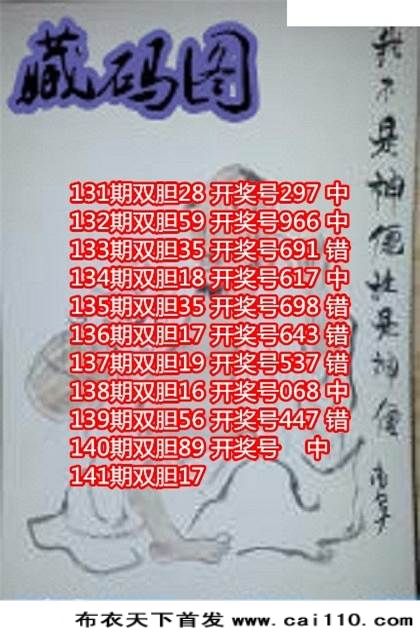 藏码图
131期双胆28 开奖号297 中
132期双胆59 开奖号966 中
133期双胆35 开奖号691 错
134期双胆18 开奖号617 中
135期双胆35 开奖号698 错
136期双胆17 开奖号643 错
137期双胆19 开奖号537 错
138期双胆16 开奖号068 中
139期双胆56 开奖号447 错
140期双胆89 开奖号 中
141期双胆17
我不是神仙
是神仙
布衣天下首发 www.cai110.com